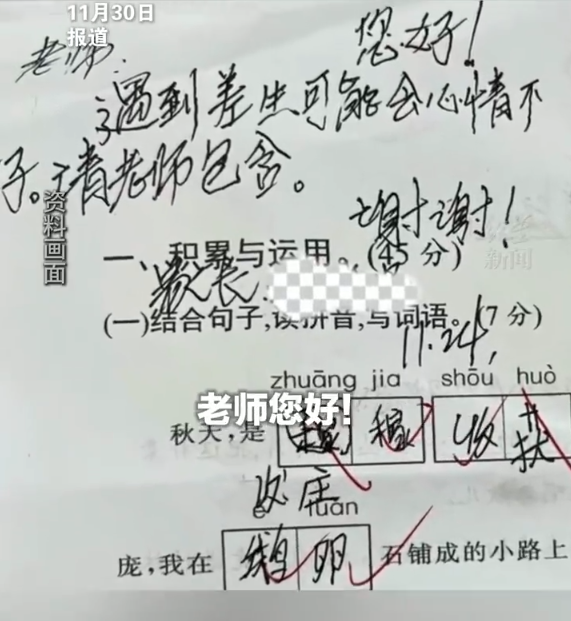 11月30日
报道
老师: 您好!
遇到差生可能会心情不
子。请老师包含。
谢谢!
资料画面
新闻
一、积累与运用。(45分)
家长
(一)结合句子,读拼音,写词语。(7分)
11.24,
zhuāng jia shōu huò
老师您好!
秋天,是 稼 收
庄
luǎn
庞,我在 鹅卵 石铺成的小路上